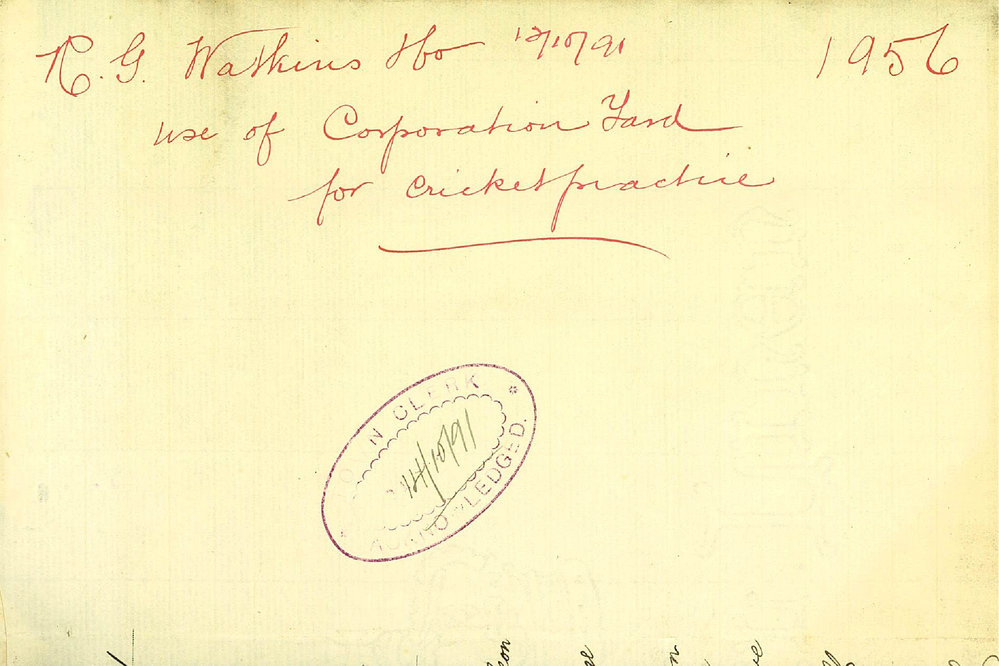 R. G. Watkins Hbo 12/10/91 1956
use of Corporation Yard
for cricket practice
TOWN CLERK
14/10/91
ACKNOWLEDGED.